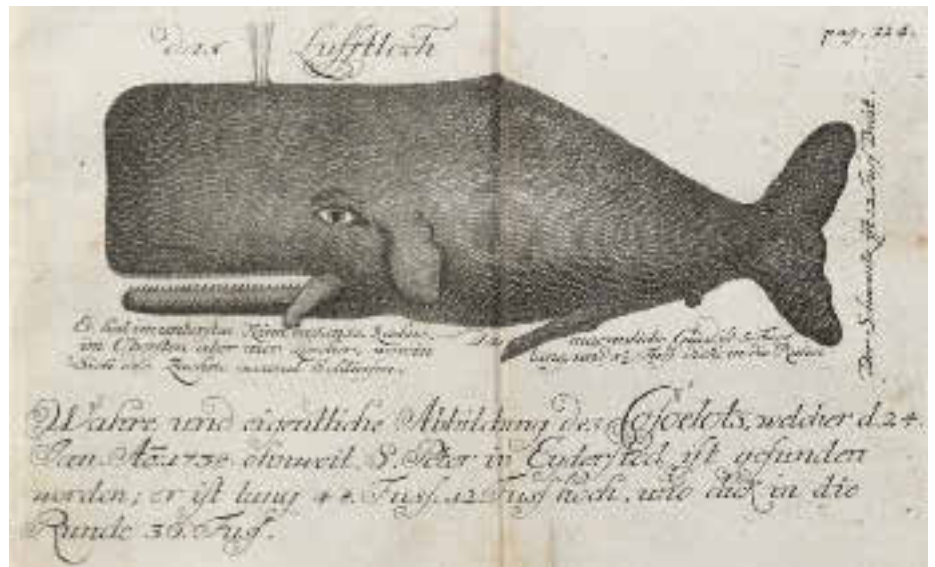 das Lufftloch
pag. 224.
Der Schwantz ist 12 Fus Breit.
Er hat im untersten Kinn
im Obersten aber nur Löcher, worin
Sich die Zaehne
männliche Glied ist
lang, und 1½ Fuß dick in die Runde
Wahre und eigentliche Abbildung des Casselots, welcher d. 24.
Jan. Ao. 1738 ohnweit S. Peter in Eydersted ist gefunden
worden; er ist lang 44. Fus. 12 Fus hoch, und dick in die
Runde 36. Fus.